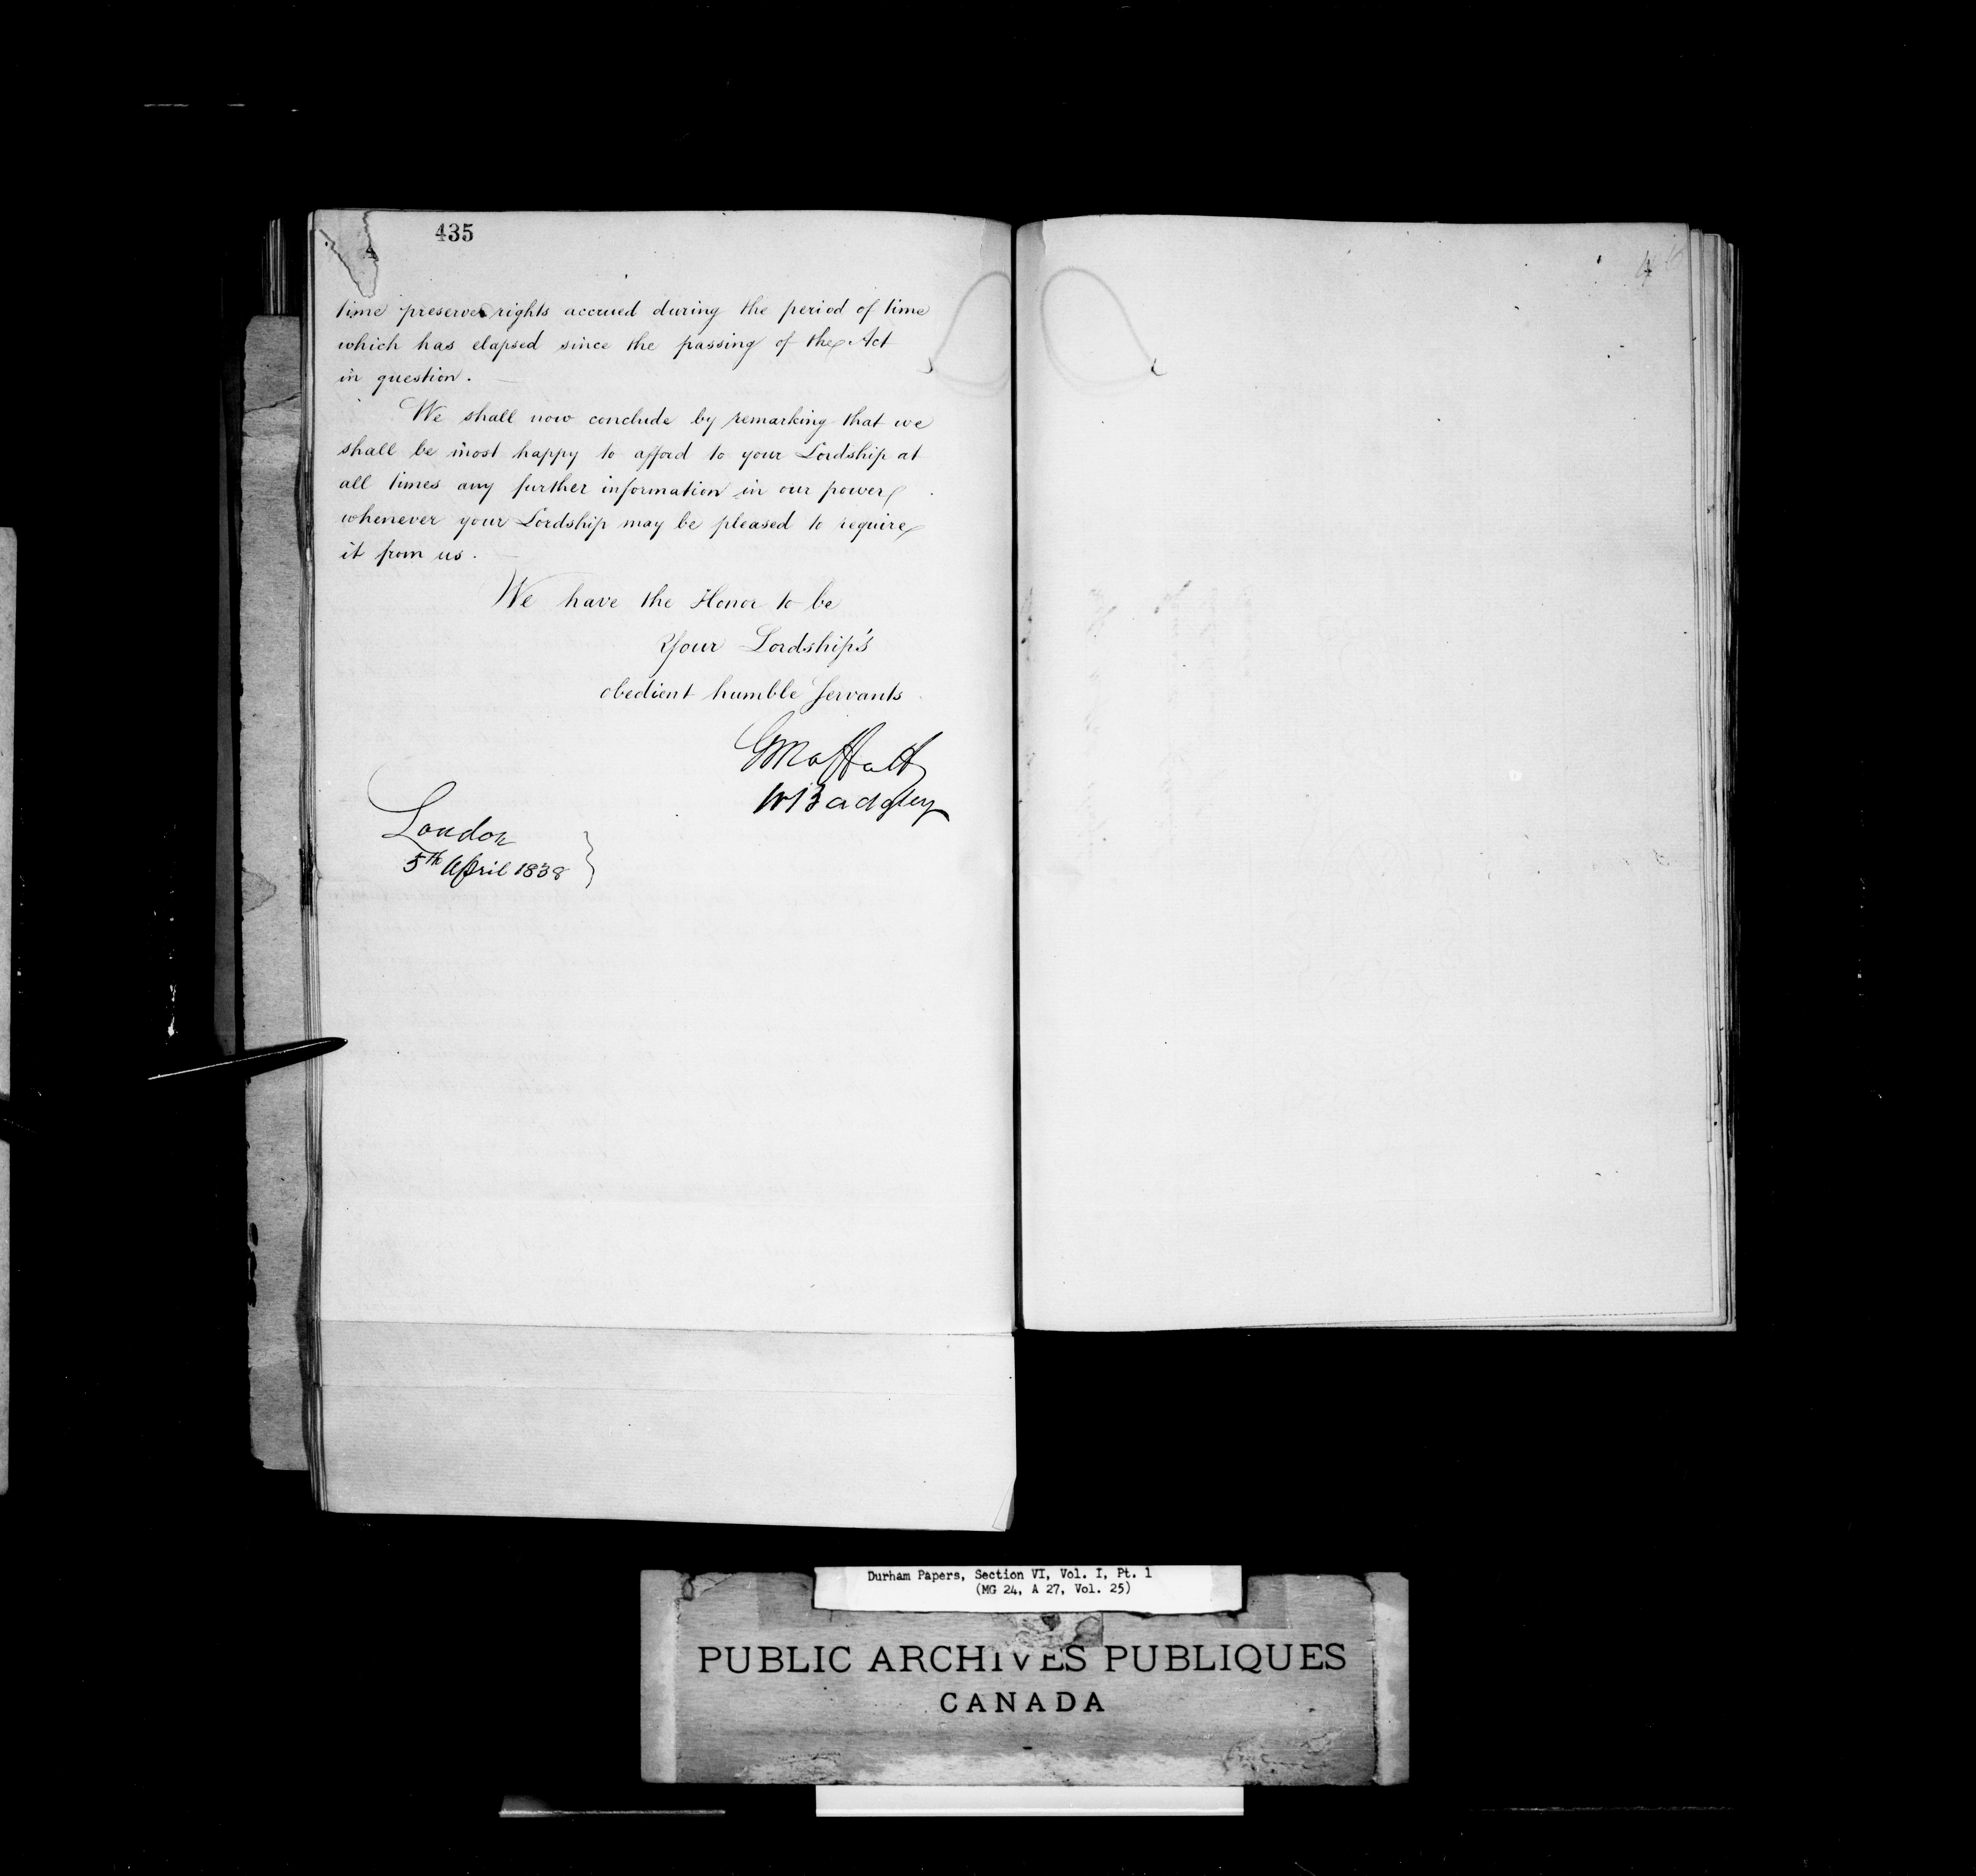 435
time preserve rights accrued during the period of time
which has elapsed since the passing of the Act
in question.
We shall now conclude by remarking that we
shall be most happy to afford to your Lordship at
all times any further information in our power
whenever your Lordship may be pleased to require
it from us.
We have the Honor to be
Your Lordship's
obedient humble Servants
G Moffatt
W Badgley
London
5th April 1838
Durham Papers, Section VI, Vol. I, Pt. 1
(MG 24, A 27, Vol. 25)
PUBLIC ARCHIVES PUBLIQUES
CANADA